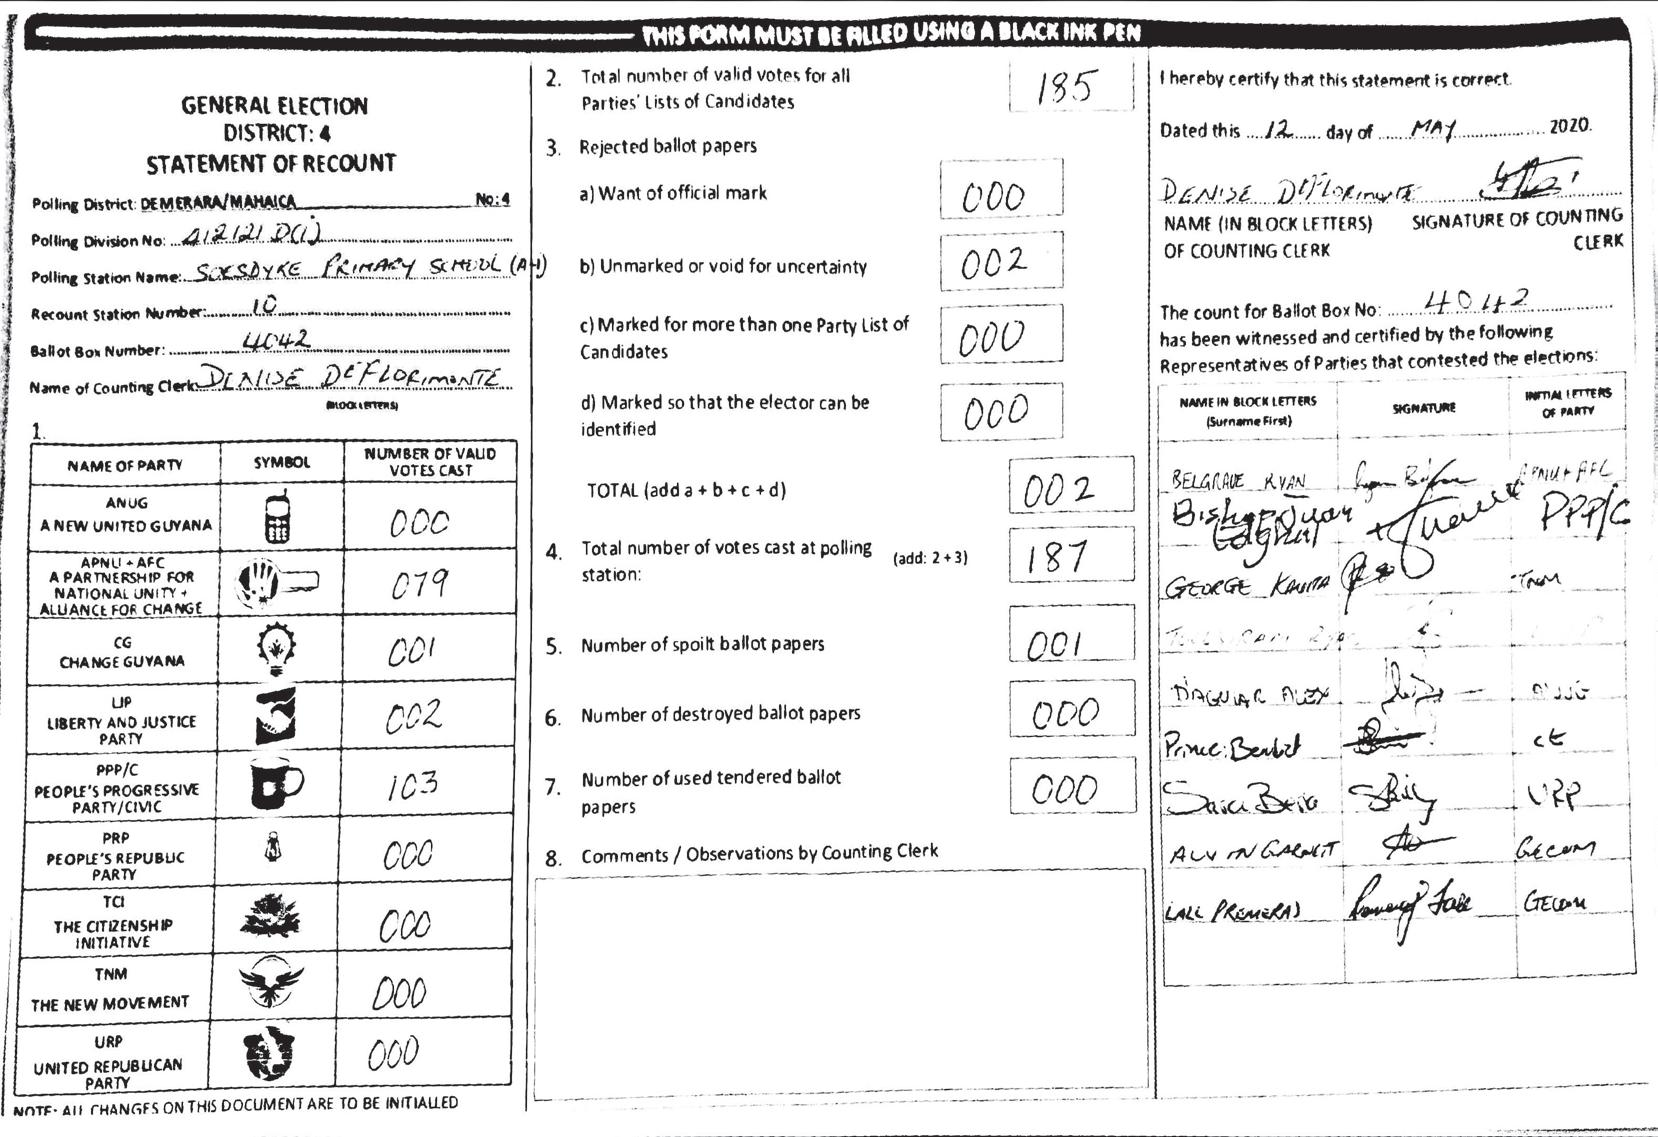 THIS FORM MUST BE FILLED USING A BLACK INK PEN
GENERAL ELECTION
DISTRICT: 4
STATEMENT OF RECOUNT
Polling District: DEMERARA/MAHAICA No: 4
Polling Division No: 412121 D(i)
Polling Station Name: SOESDYKE PRIMARY SCHOOL (A-H)
Recount Station Number: 10
Ballot Box Number: 4042
Name of Counting Clerk: DENISE DEFLORIMONTE
(BLOCK LETTERS)
1.
NAME OF PARTY SYMBOL NUMBER OF VALID VOTES CAST
ANUG
A NEW UNITED GUYANA 000
APNU + AFC
A PARTNERSHIP FOR
NATIONAL UNITY +
ALLIANCE FOR CHANGE 079
CG
CHANGE GUYANA 001
LJP
LIBERTY AND JUSTICE
PARTY 002
PPP/C
PEOPLE'S PROGRESSIVE
PARTY/CIVIC 103
PRP
PEOPLE'S REPUBLIC
PARTY 000
TCI
THE CITIZENSHIP
INITIATIVE 000
TNM
THE NEW MOVEMENT 000
URP
UNITED REPUBLICAN
PARTY 000
NOTE: ALL CHANGES ON THIS DOCUMENT ARE TO BE INITIALLED
2. Total number of valid votes for all
Parties' Lists of Candidates 185
3. Rejected ballot papers
a) Want of official mark 000
b) Unmarked or void for uncertainty 002
c) Marked for more than one Party List of
Candidates 000
d) Marked so that the elector can be
identified 000
TOTAL (add a + b + c + d) 002
4. Total number of votes cast at polling (add: 2 + 3)
station: 187
5. Number of spoilt ballot papers 001
6. Number of destroyed ballot papers 000
7. Number of used tendered ballot
papers 000
8. Comments / Observations by Counting Clerk
I hereby certify that this statement is correct.
Dated this 12 day of MAY 2020.
DENISE DEFLORIMONTE
NAME (IN BLOCK LETTERS) SIGNATURE OF COUNTING
OF COUNTING CLERK CLERK
The count for Ballot Box No: 4042
has been witnessed and certified by the following
Representatives of Parties that contested the elections:
NAME IN BLOCK LETTERS
(Surname First) SIGNATURE INITIAL LETTERS
OF PARTY
BELGRAVE RYAN APNU+AFC
Bishop PPP/C
GEORGE TNM
D'AGUIAR ALEX ANUG
Prince CG
URP
ALVIN GARNETT GECOM
LALL PREMERAJ GECOM